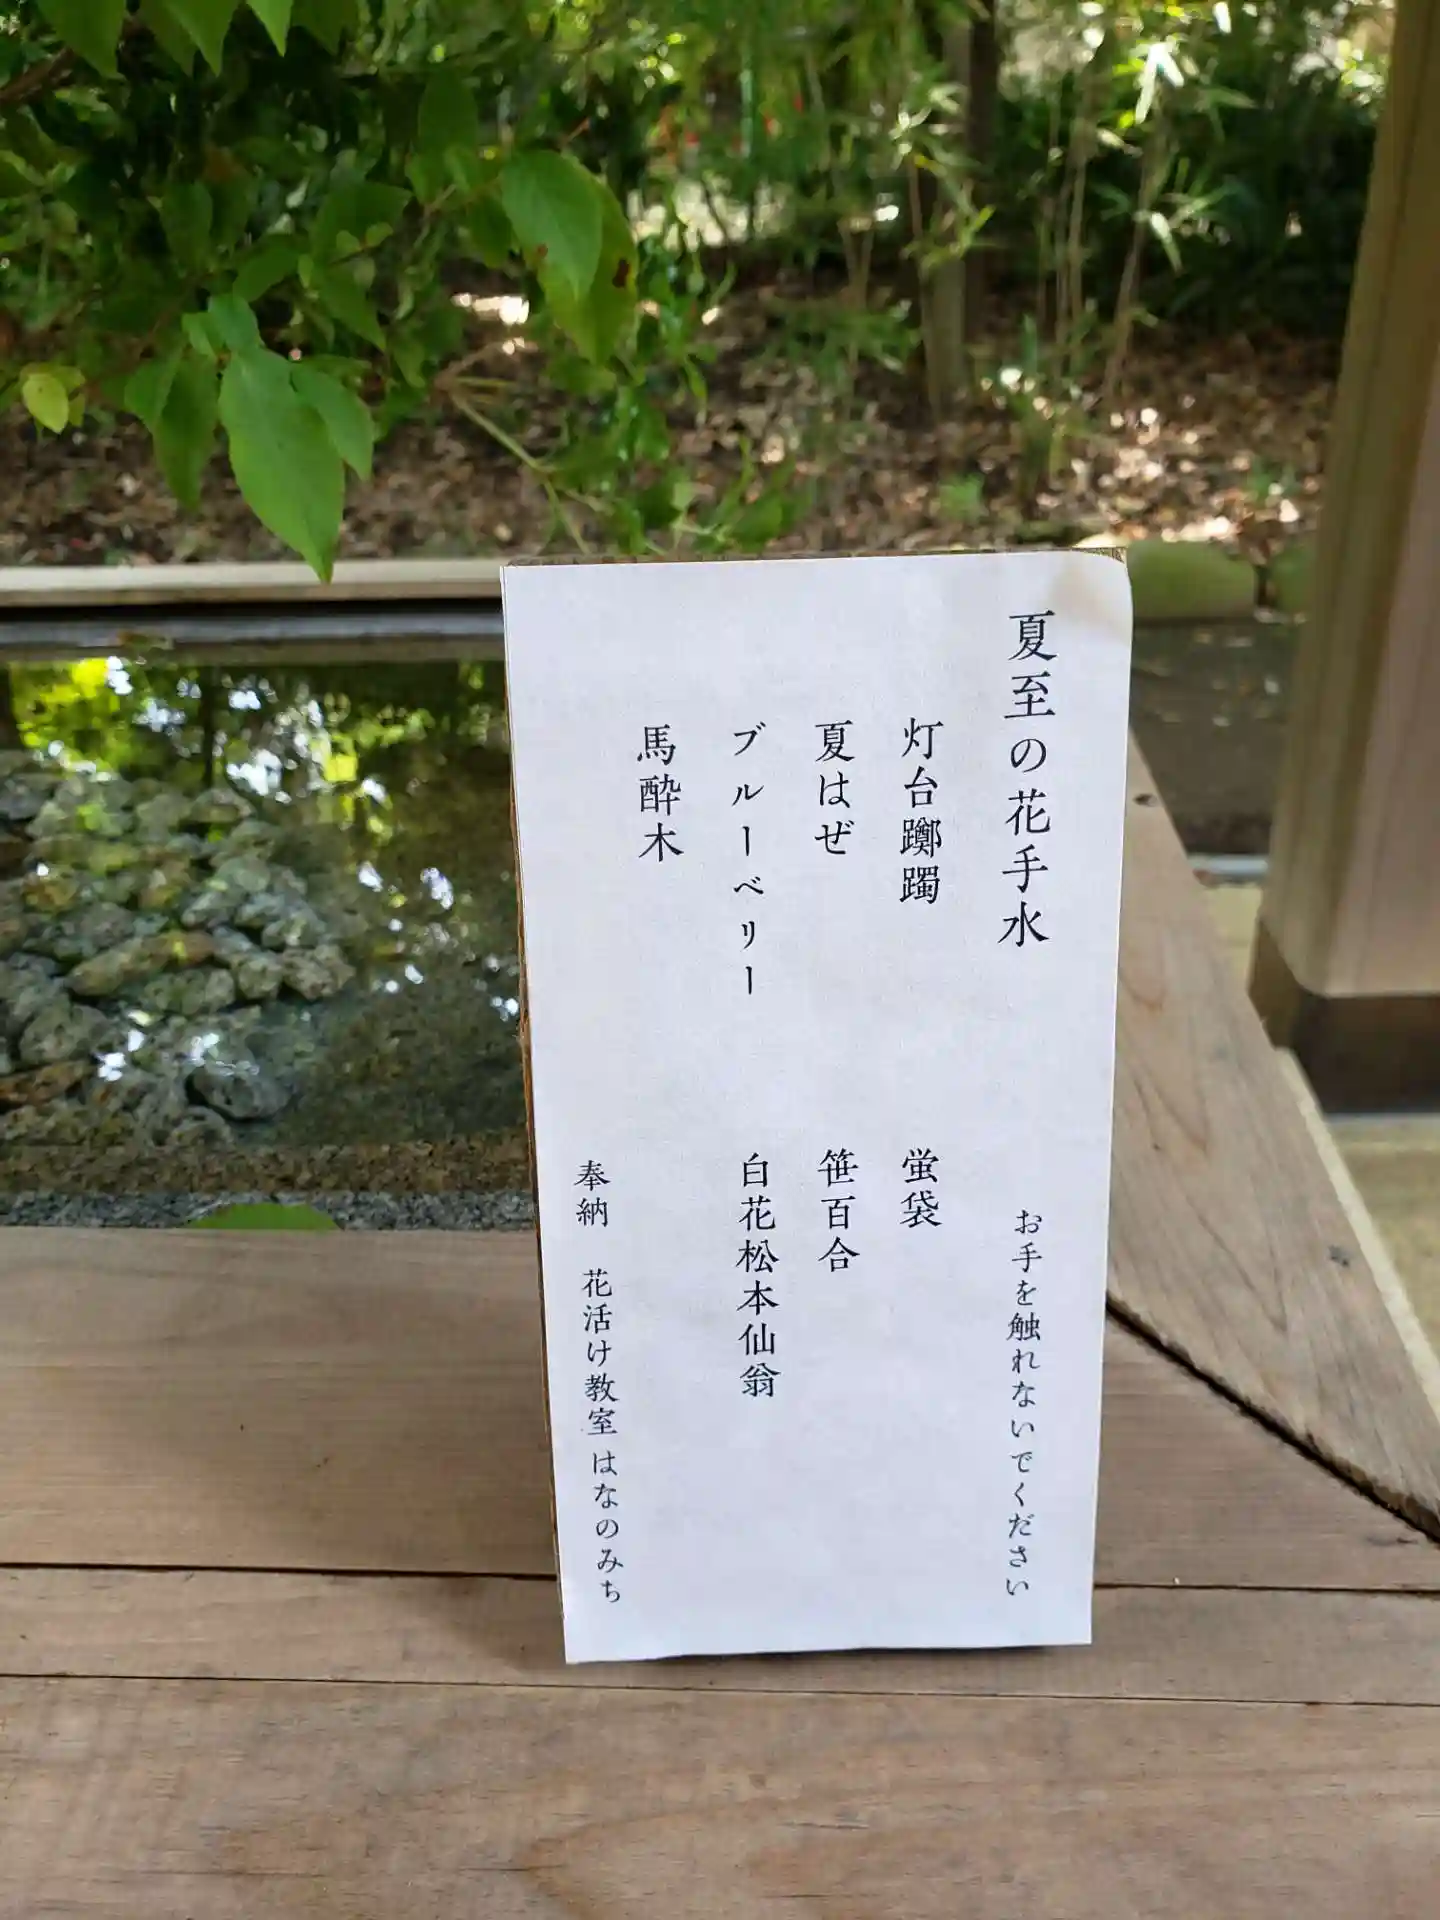 夏至の花手水
お手を触れないでください
灯台躑躅
蛍袋
夏はぜ
笹百合
ブルーベリー
白花松本仙翁
馬酔木
奉納 花活け教室 はなのみち